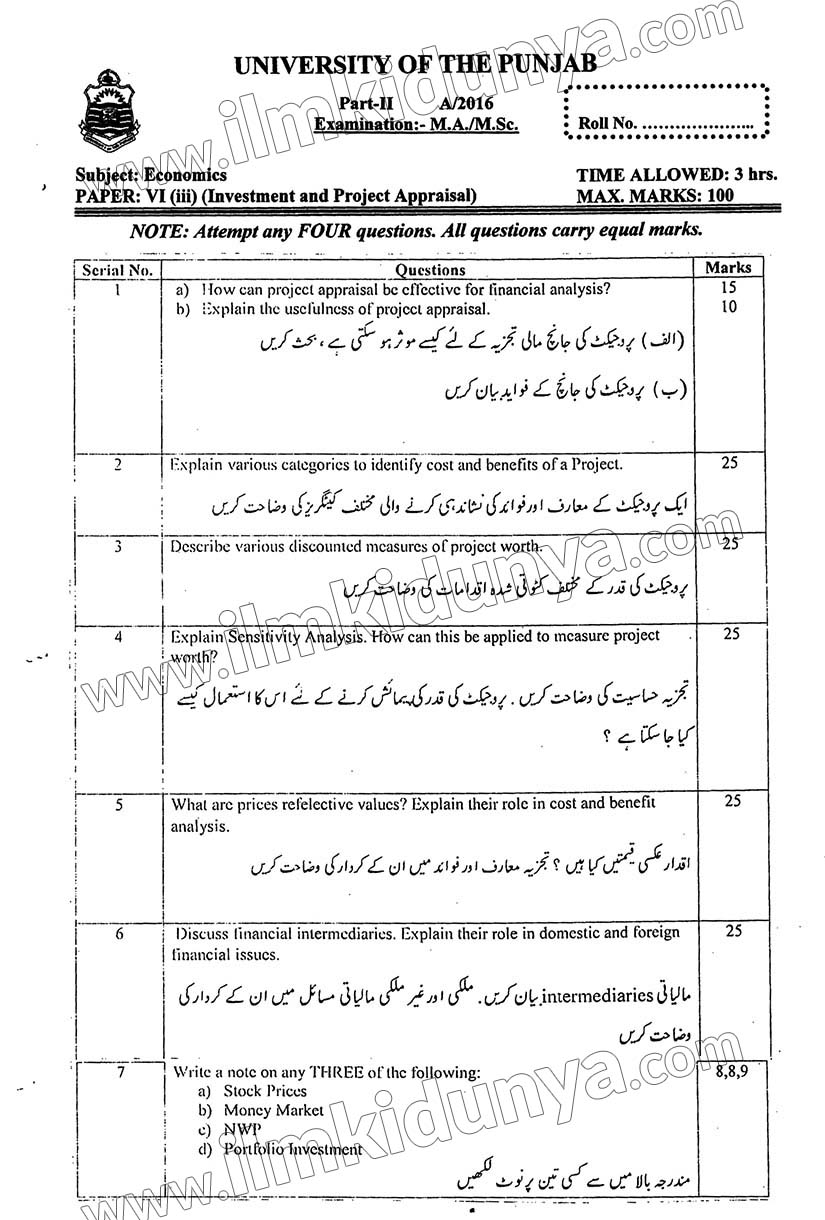 UNIVERSITY OF THE PUNJAB
Part-II A/2016
Examination:- M.A./M.Sc.
Roll No. .......................
Subject: Economics
TIME ALLOWED: 3 hrs.
PAPER: VI (iii) (Investment and Project Appraisal)
MAX. MARKS: 100
NOTE: Attempt any FOUR questions. All questions carry equal marks.
Serial No. Questions Marks
1 a) How can project appraisal be effective for financial analysis? 15
b) Explain the usefulness of project appraisal. 10
(الف) پروجیکٹ کی جانچ مالی تجزیہ کے لئے کیسے موثر ہو سکتی ہے ، بحث کریں
(ب) پروجیکٹ کی جانچ کے فواید بیان کریں
2 Explain various categories to identify cost and benefits of a Project. 25
ایک پروجیکٹ کے معارف اور فوائد کی نشاندہی کرنے والی مختلف کیٹگریز کی وضاحت کریں
3 Describe various discounted measures of project worth. 25
پروجیکٹ کی قدر کے مختلف کٹوتی شدہ اقدامات کی وضاحت کریں
4 Explain Sensitivity Analysis. How can this be applied to measure project 25
worth?
تجزیہ حساسیت کی وضاحت کریں ۔ پروجیکٹ کی قدر کی پیمائش کرنے کے لئے اس کا استعمال کیسے
کیا جا سکتا ہے ؟
5 What are prices refelective values? Explain their role in cost and benefit 25
analysis.
اقدار عکسی قیمتیں کیا ہیں ؟ تجزیہ معارف اور فوائد میں ان کے کردار کی وضاحت کریں
6 Discuss financial intermediaries. Explain their role in domestic and foreign 25
financial issues.
مالیاتی intermediaries بیان کریں۔ ملکی اور غیر ملکی مالیاتی مسائل میں ان کے کردار کی
وضاحت کریں
7 Write a note on any THREE of the following: 8,8,9
a) Stock Prices
b) Money Market
c) NWP
d) Portfolio Investment
مندرجہ بالا میں سے کسی تین پر نوٹ لکھیں
www.ilmkidunya.com
www.ilmkidunya.com
www.ilmkidunya.com